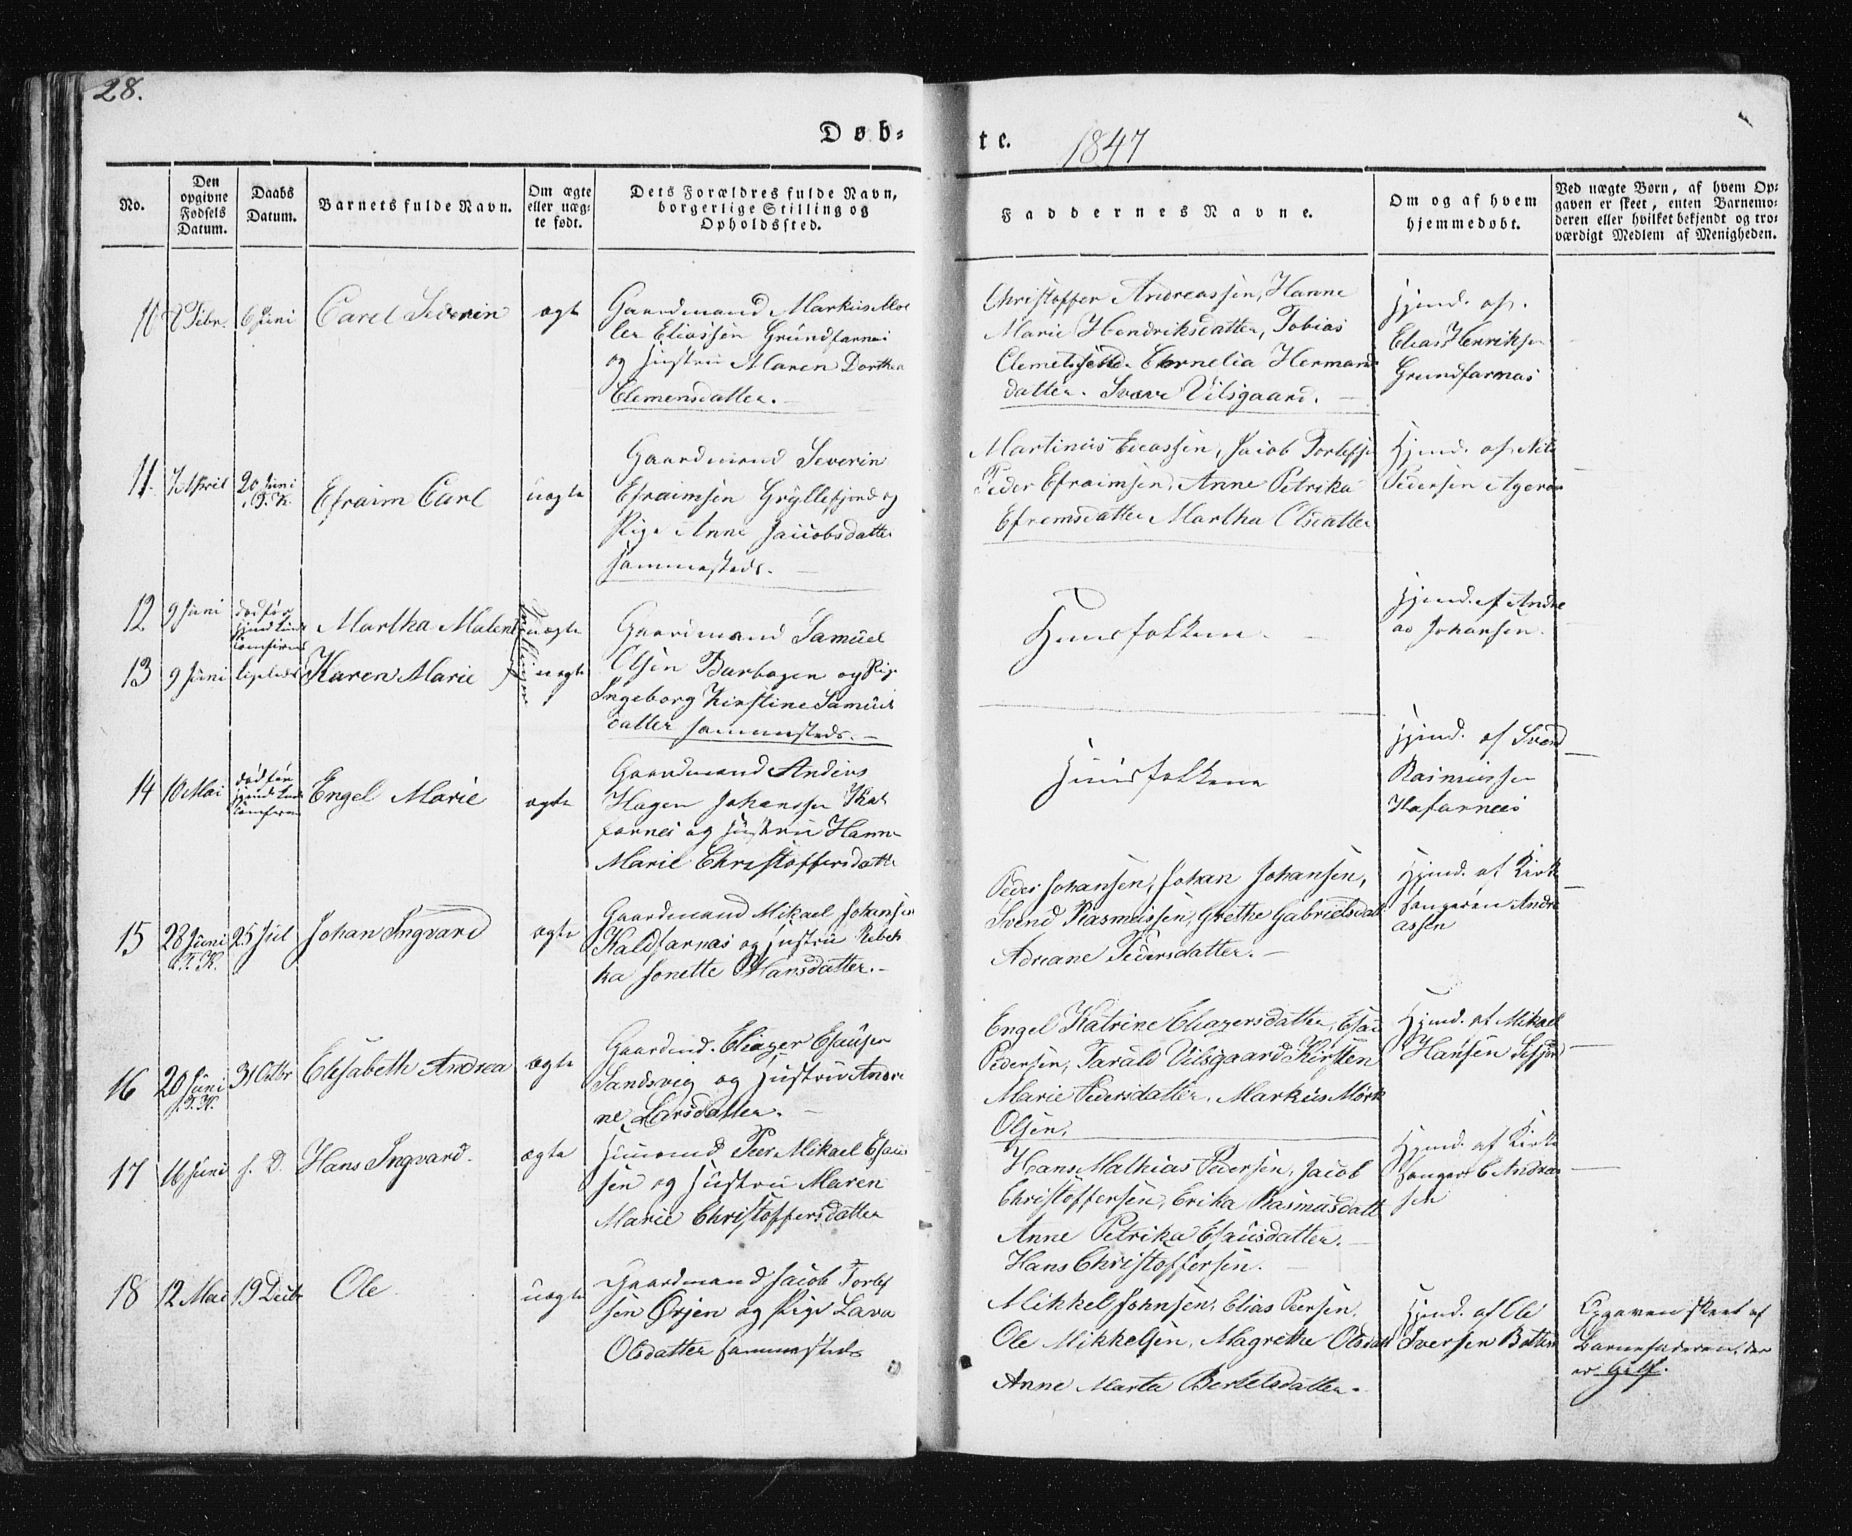 28.
Døb-
te. 1847
No.
Den
opgivne
Fødsels
Datum.
Daabs
Datum.
Barnets fulde Navn.
Om ægte
eller uæg-
te født.
Dets Forældres fulde Navn,
borgerlige Stilling og
Opholdssted.
Faddernes Navne.
Om og af hvem
hjemmedøbt.
Ved uægte Børn, af hvem Op-
gaven er skeet, enten Barnemo-
deren eller hvilket bekjendt og tro-
værdigt Medlem af Menigheden.
10 Febr. 6 Juni Carel Severin ægte
Gaardmand Markus Møl
ler Eliassen Grundfarnes
og Hustru Maren Dorthea
Clemensdatter.
Christoffer Andreassen, Hanne
Marie Hendriksdatter, Tobias
Cornelia Herman
datter. Vilsgaard.
Hjmd. af
Elias Henriksen
Grundfarnæs
11. April 20 Juni Efraim Carl uægte
i T. K.
Gaardmand Severin
Efraimsen Gryllefjord og
Pige Anne Jacobsdatter
sammesteds.
Martinus Eliassen, Jacob Torlefse
Peder Efraimsen, Anne Petrika
Efremsdatter Martha Olsdatter
Hjmd. af Nils
Pedersen
12 9 Juni død før Martha Malene uægte
13 9 Juni ligeledes Karen Marie uægte
Gaardmand Samuel
Olsen Barbogen og Pige
Ingeborg Kirstine Samuels
datter sammesteds.
Huusfolkene.
Hjmd. af Andre
as Johansen.
14 10 Mai død før Engel Marie ægte
Gaardmand Anders
Hagen Johanssen Kal
farnes og Hustru Hanne
Marie Christoffersdatte
Huusfolkene
Hjmd. af Svend
Rasmussen
15 28 Juni 25 Jul Johan Ingvard ægte
i T. K.
Gaardmand Mikael Johansen
Kaldfarnæs og Hustru Rebek
ka Jonette Hansdatter.
Peder Johansen, Johan Johansen,
Svend Rasmussen, Grethe Gabrielsdatt
Adriane Pedersdatter.
Hjmd. af Kirke
sangeren Andre
assen
16 20 Juni 31 Octbr Elisabeth Andrea ægte
i T. K.
Gaardmd. Eliazer Esausen
Sandsvig og Hustru Andri
ne Larsdatter.
Engel Katrine Eliazersdatter, Esau
Pedersen, Tarald Vilsgaard, Kirsten
Marie Pedersdatter, Markus Mørk
Olsen.
Hjmd. af Mikael
Hansen
17 16 Juni s. D. Hans Ingvard. ægte
Huusmand Peer Mikael Esau
sen og Hustru Maren
Marie Christoffersdatter
Hans Mathias Pedersen, Jacob
Christoffersen, Erika Rasmusdatt
Anne Petrika Esausdatter.
Hans Christoffersen.
Hjmd. af Kirke
sanger C Andreas
sen
18 12 Mai 19 Decbr Ole uægte
Gaardmand Jacob Torlef
sen Ørjen og Pige Lava
Olsdatter sammesteds
Mikkel Johnsen, Elias Peersen,
Ole Mikkelsen, Magrethe Olsdatt
Anne Marta Bertelsdatter.
Hjmd. af Ole
Iversen
Opgaven skeet af
Barnefaderen, der
er